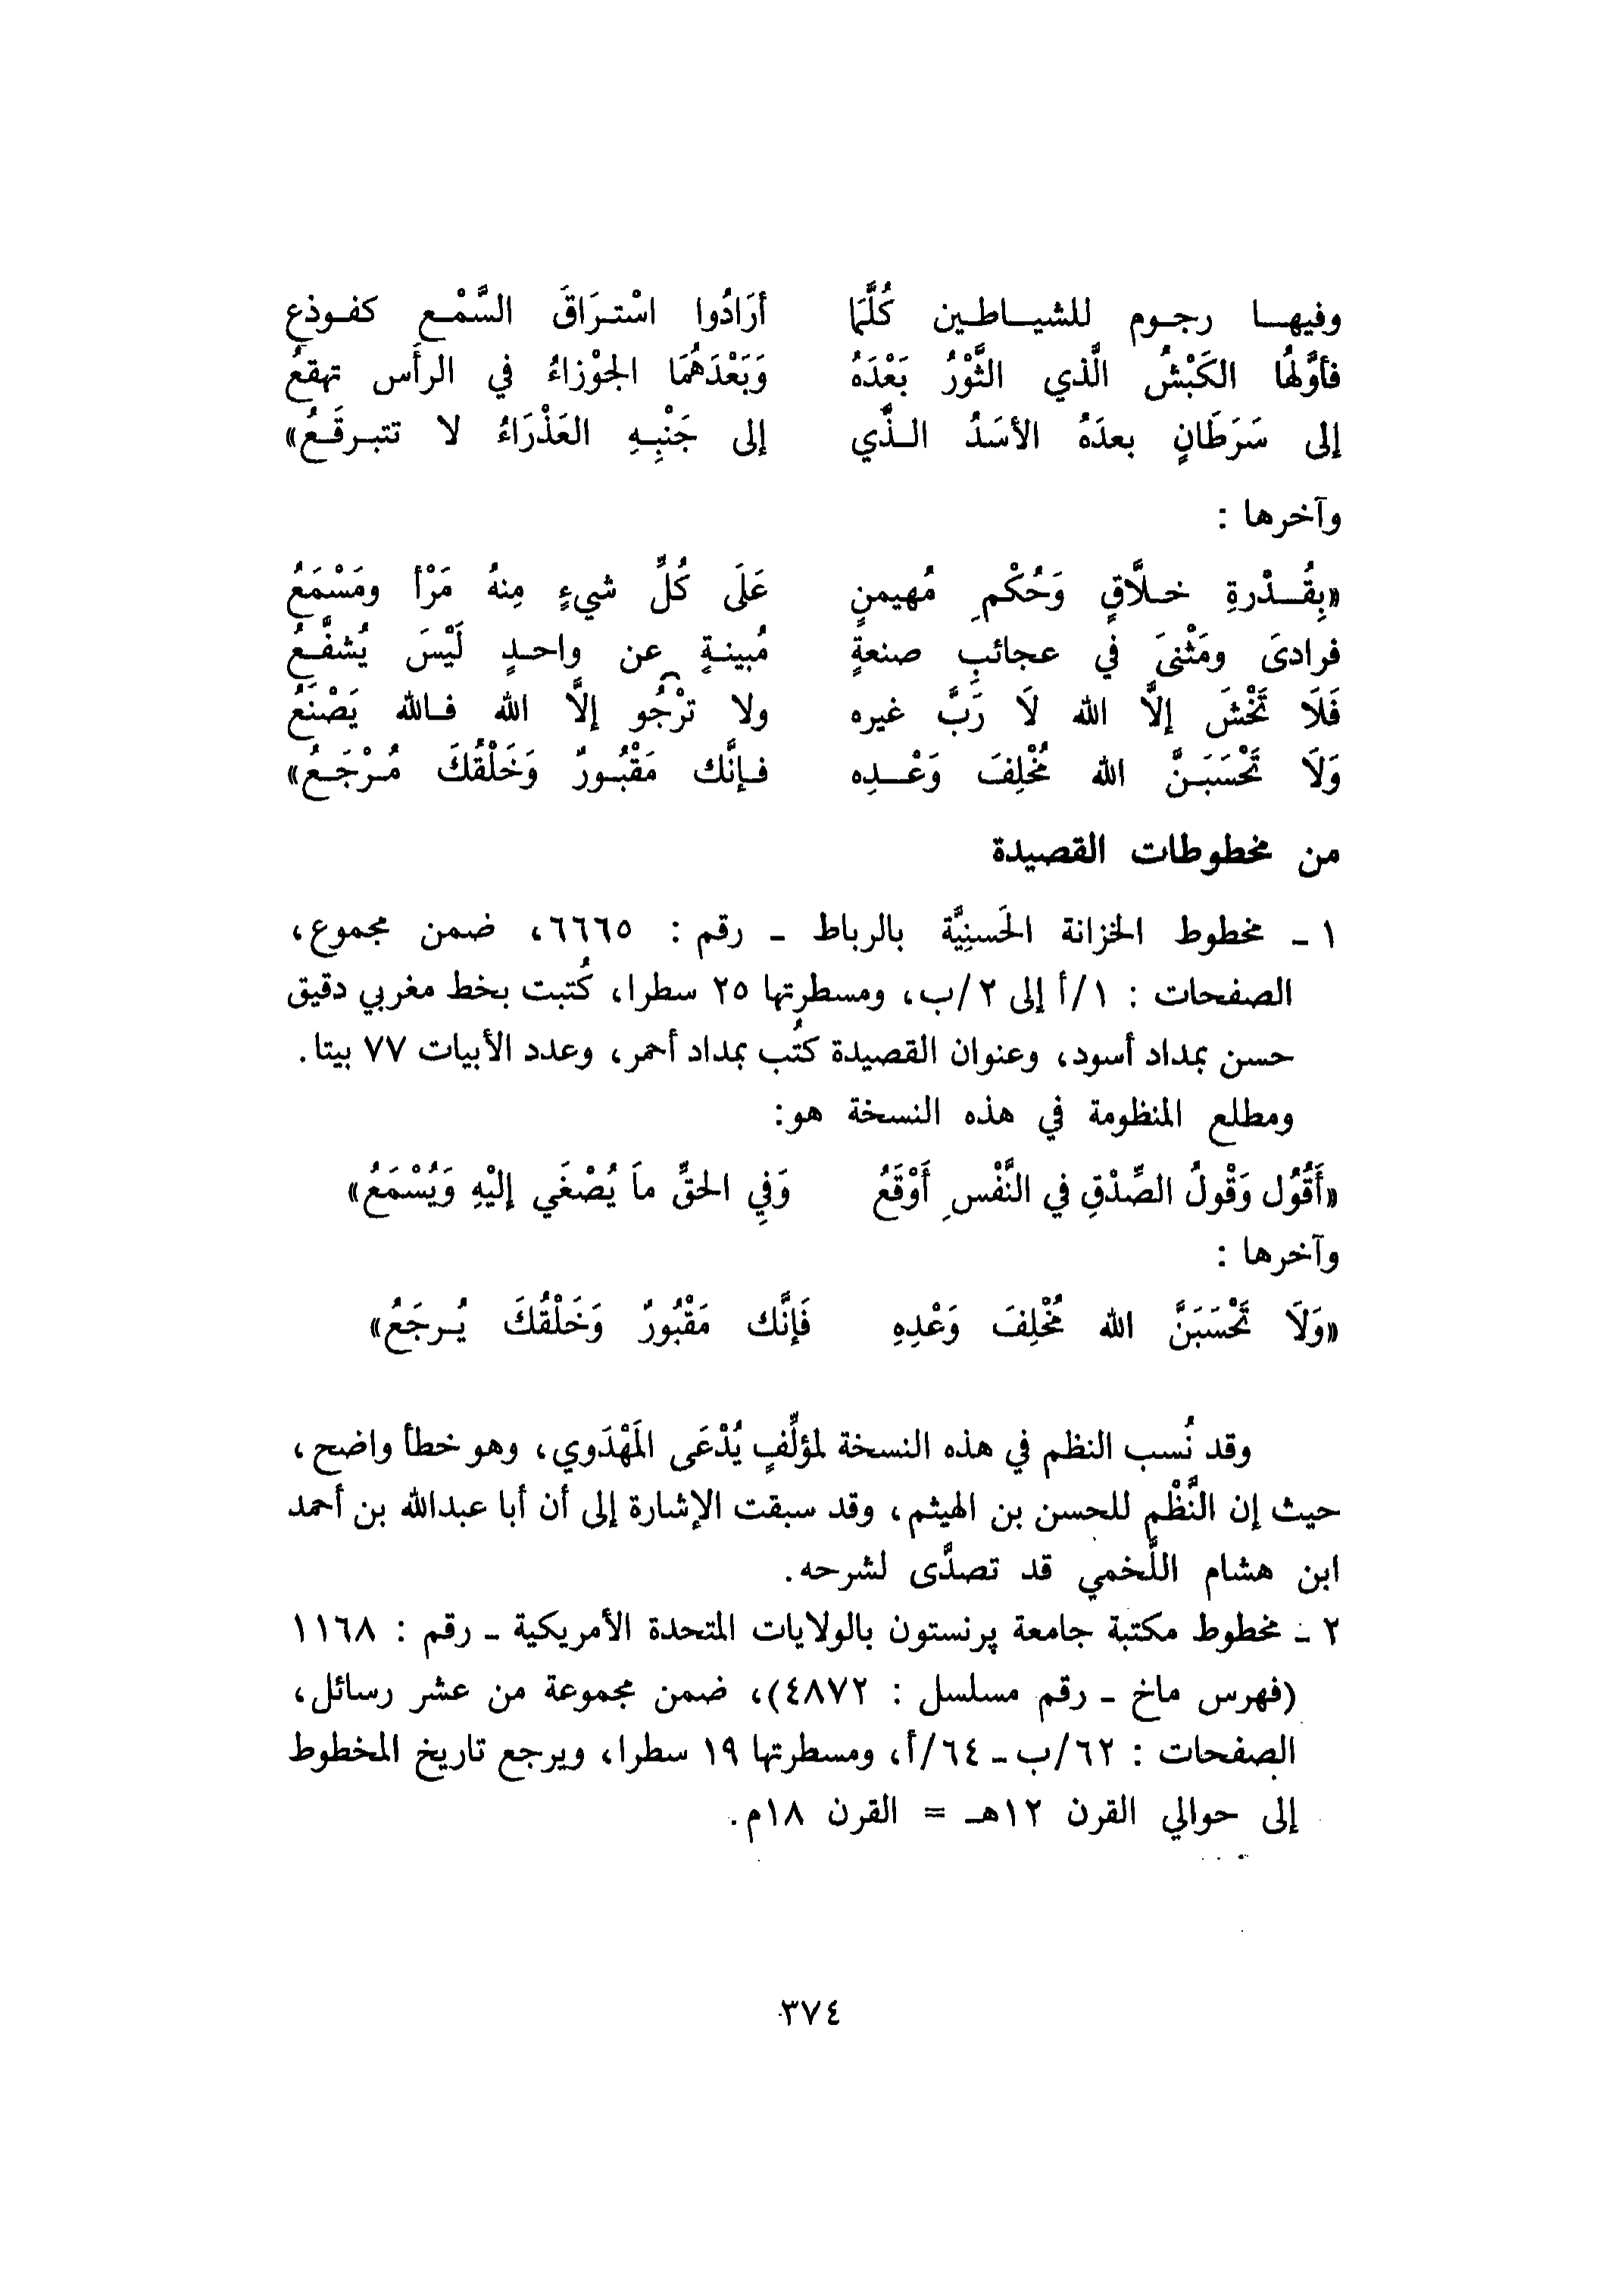 وفيهـا رجـوم للشيـاطـين كُلَّمَا أرَادُوا اسْتـرَاقَ السَّمْـعِ كفـوذع
فأوَّلُهَا الكَبْشُ الَّذي الثَّوْرُ بَعْدَهُ وَبَعْدَهُمَا الجَوْزاءُ في الرأَس تهقعُ
إلى سَرَطَانٍ بعدَهُ الأسَدُ الـذَّي إلى جَنْبِـهِ العَذْرَاءُ لا تتبـرقَـعُ»
وآخرها :
«بِقُـدْرةِ خـلاَّقٍ وَحُكْمِ مُهيمنٍ عَلَى كُلِّ شيءٍ مِنهُ مَرْأ ومَسْمَعُ
فرادىَ ومَثْنىَ في عجائبِ صنعةٍ مُبينـةٍ عن واحـدٍ لَيْسَ يُشفَّـعُ
فَلَا تَخْشَ إلَّا الله لَا رَبَّ غيره ولا ترْجُو إلَّا الله فـالله يَصْنَعُ
وَلَا تَحْسَبَـنَّ الله مُخْلِفَ وَعْـدِه فـإنَّك مَقْبُـورٌ وَخَلْقُكَ مُـرْجَـعُ»
من مخطوطات القصيدة
١ ـ مخطوط الخزانة الحَسنِيَّة بالرباط ـ رقم : ٦٦٦٥، ضمن مجموع،
الصفحات : ١/أ إلى ٢/ب، ومسطرتها ٢٥ سطرا، كُتبت بخط مغربي دقيق
حسن بمداد أسود، وعنوان القصيدة كتُب بمداد أحمر، وعدد الأبيات ٧٧ بيتا.
ومطلع المنظومة في هذه النسخة هو:
«أَقُوُل وَقْولُ الصِّدْقِ في النَّفْسِ أَوْقَعُ وَفِي الحقِّ ماَ يُصْغَي إليْهِ وَيُسْمَعُ»
وآخرها :
«وَلَا تَحْسَبَنَّ الله مُخْلِفَ وَعْدِهِ فَإنَّك مَقْبُورٌ وَخَلْقُكَ يُـرجَعُ»
وقد نُسب النظم في هذه النسخة لمؤلِّفٍ يُدْعَى المَهْدَوي، وهو خطأ واضح،
حيث إن النَّظْم للحسن بن الهيثم، وقد سبقت الإشارة إلى أن أبا عبدالله بن أحمد
ابن هشام اللَّخمي قد تصدَّى لشرحه.
٢ ـ مخطوط مكتبة جامعة پرنستون بالولايات المتحدة الأمريكية ـ رقم : ١١٦٨
(فهرس ماخ ـ رقم مسلسل : ٤٨٧٢)، ضمن مجموعة من عشر رسائل،
الصفحات : ٦٢/ب ـ ٦٤/أ، ومسطرتها ١٩ سطرا، ويرجع تاريخ المخطوط
إلى حوالي القرن ١٢هـ = القرن ١٨م.
٣٧٤